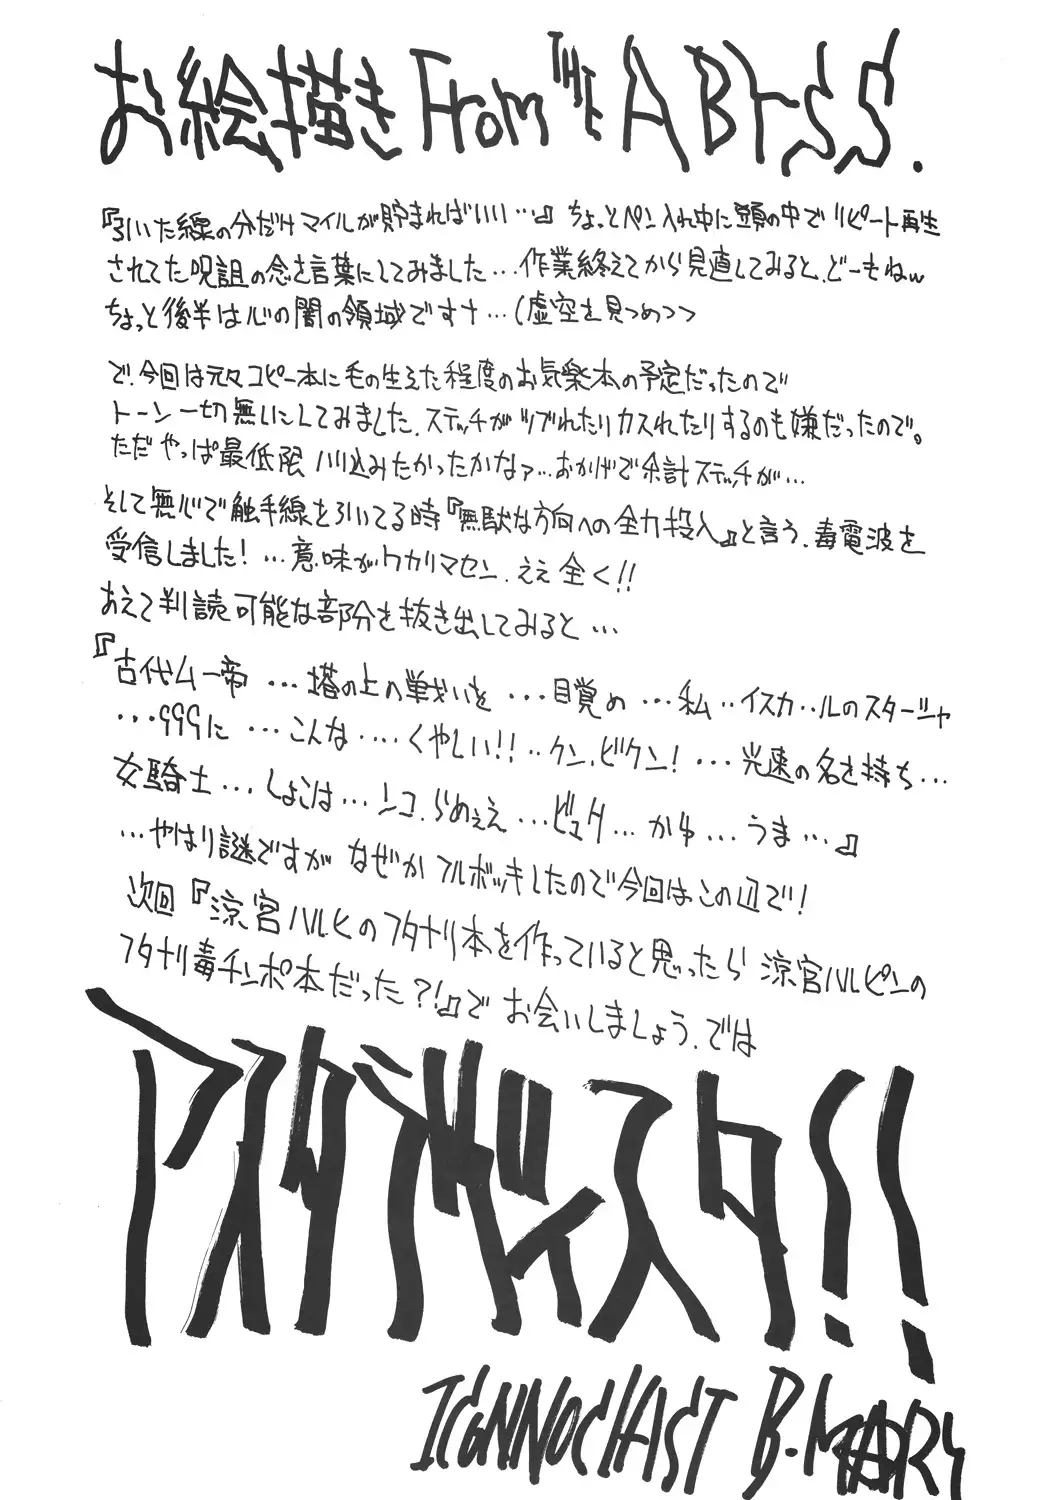 お絵描き From THE ABYSS.
『引いた線の分だけマイルが貯まればいい…』 ちょっとペン入れ中に頭の中でリピート再生
されてた呪詛の念を言葉にしてみました…作業終えてから見直してみると、どーもねw
ちょっと後半は心の闇の領域です十…(虚空を見つめつつ
で、今回は元々コピー本に毛の生えた程度のお気楽本の予定だったので
トーン一切無しにしてみました、ステッチがツブれたりカスれたりするのも嫌だったので。
ただやっぱ最低限 ハリ込みたかったかなァ…おかげで余計ステッチが…
そして無心で触手線を引いてる時『無駄な方向への全力投入』と言う、毒電波を
受信しました!…意味がワカリマセン、ええ全く!!
あえて判読可能な部分を抜き出してみると…
『古代ムー帝…塔の上の戦いを…目覚め…私‥イスカ‥ルのスタージャ
…999に…こんな‥‥くやしい!!‥クン、ビクン!…光速の名を持ち…
女騎士…しょこは…ンコ、らめぇえ…ビュク…かゆ…うま…』
…やはり謎ですが なぜかフルボッキしたので今回はこの辺で!
次回『涼宮ハルヒのフタナリ本を作っていると思ったら 涼宮ハルピンの
フタナリ毒チンポ本だった?!』で お会いしましょう、では
アスタラビスタ!!
ICONNOCLAST B.MARY